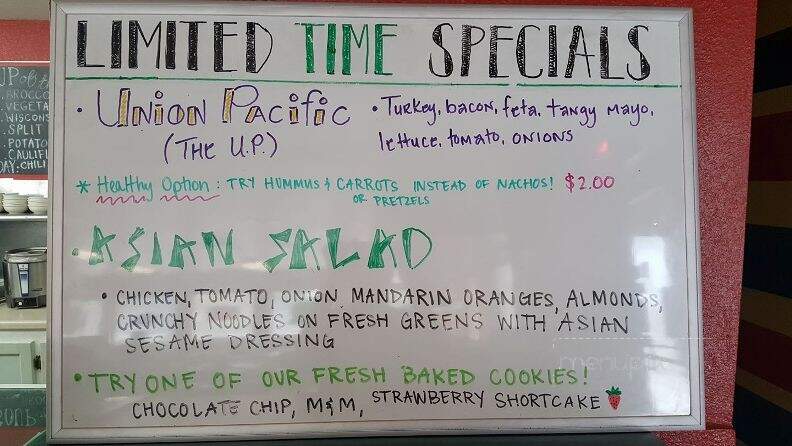 LIMITED TIME SPECIALS
• UNION PACIFIC
(THE U.P.)
• Turkey, bacon, feta, tangy mayo,
lettuce, tomato, onions
* Healthy Option: TRY HUMMUS & CARROTS INSTEAD OF NACHOS! $2.00
OR PRETZELS
• ASIAN SALAD
• CHICKEN, TOMATO, ONION, MANDARIN ORANGES, ALMONDS,
CRUNCHY NOODLES ON FRESH GREENS WITH ASIAN
SESAME DRESSING
• TRY ONE OF OUR FRESH BAKED COOKIES!
CHOCOLATE CHIP, M&M, STRAWBERRY SHORTCAKE
BROCCO
VEGETA
WISCONS
SPLIT
POTATO
CAULIFL
DAY. CHILI